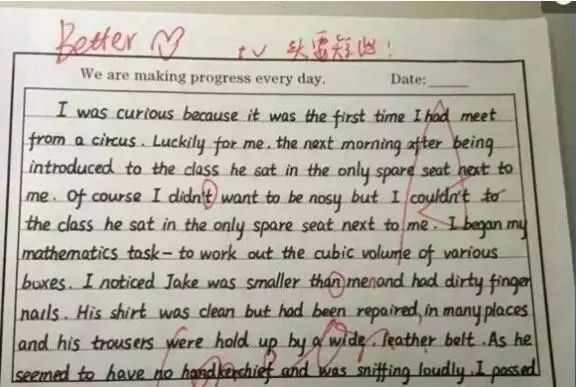 Better
tv 头要短些!
We are making progress every day. Date:
I was curious because it was the first time I had meet
from a circus. Luckily for me. the next morning after being
introduced to the class he sat in the only spare seat next to
me. Of course I didn't want to be nosy but I couldn't to
the class he sat in the only spare seat next to me. I began my
mathematics task- to work out the cubic volume of various
boxes. I noticed Jake was smaller than menand had dirty finger
nails. His shirt was clean but had been repaired, in many places
and his trousers were hold up by a wide, leather belt. As he
seemed to have no handkerchief and was sniffing loudly I passed